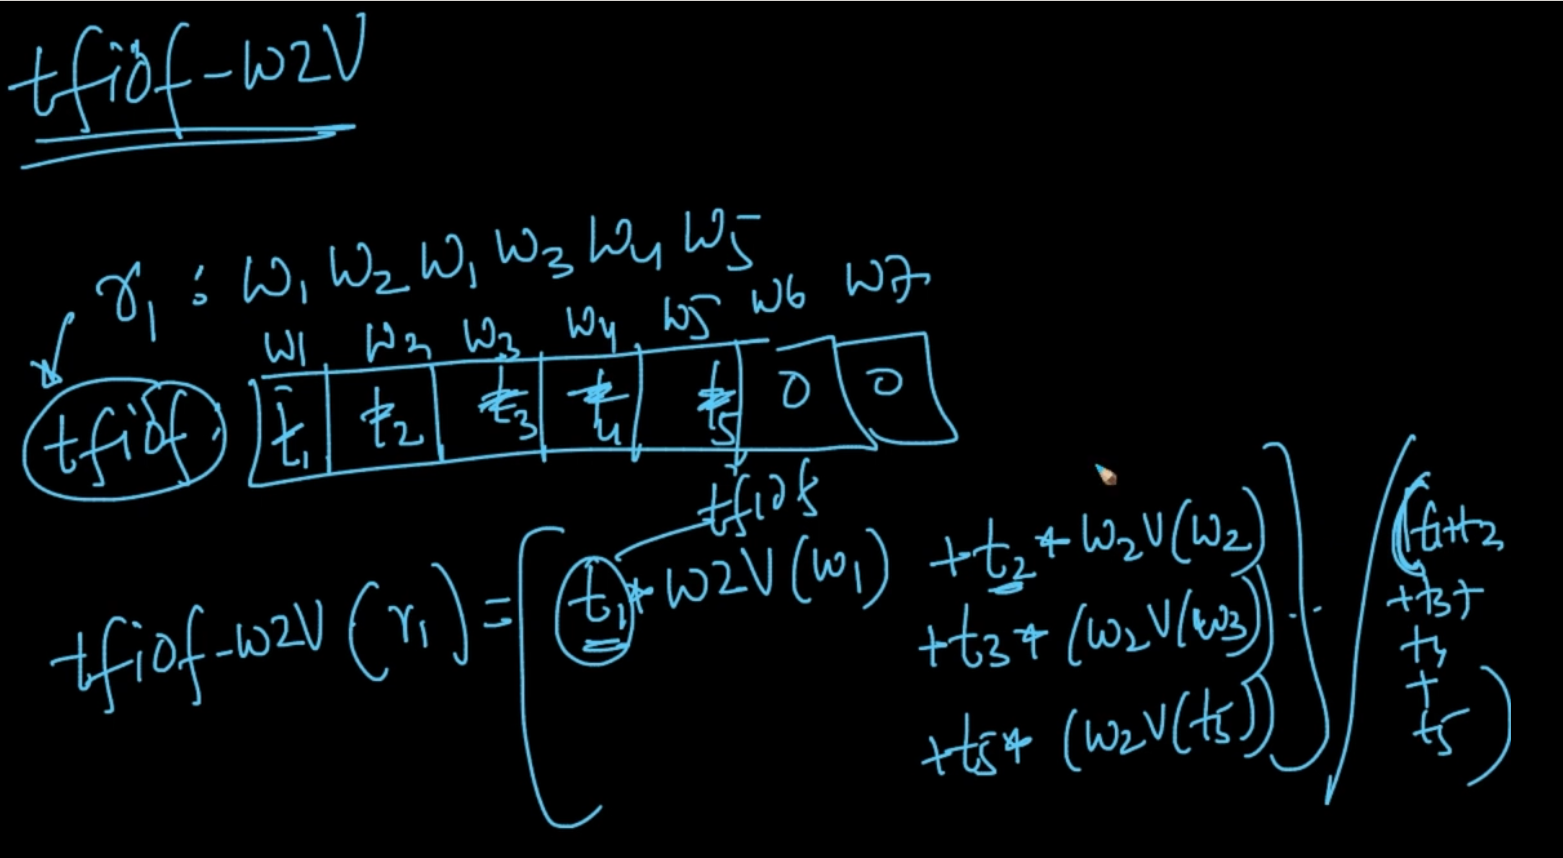 tfidf-w2V
r1 : w1 w2 w1 w3 w4 w5
w1 w2 w3 w4 w5 w6 w7
tfidf: t1 t2 t3 t4 t5 0 0
tfidf
tfidf-w2V (r1) = [ t1 * w2V (w1) + t2 * w2V (w2)
+ t3 * (w2V (w3))
+ t5 * (w2V (t5)) ] / (t1+t2
+t3+
t4
+
t5)